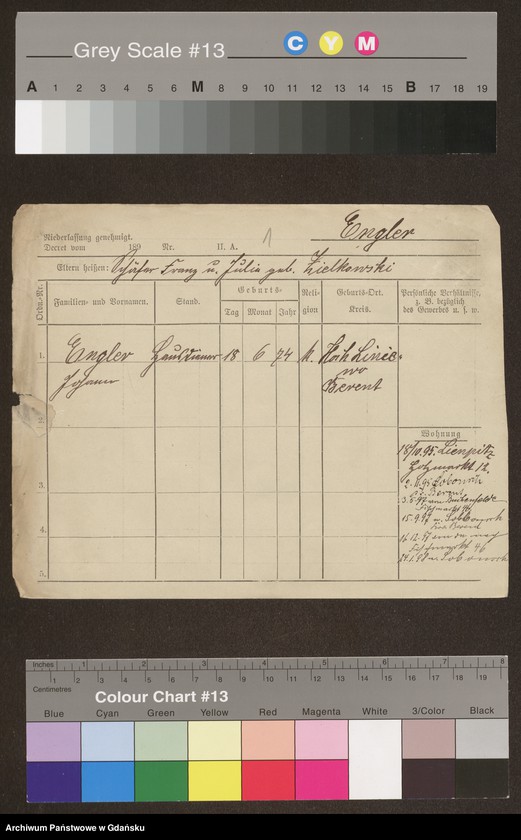 Grey Scale #13
C Y M
A 1 2 3 4 5 6 M 8 9 10 11 12 13 14 15 B 17 18 19
Engler
Niederlassung genehmigt.
Decret vom 189 Nr. II. A.
1
Eltern heißen: Schäfer Franz u. Julia geb. Zielkowski
Ordn.-Nr.
Familien- und Vornamen.
Stand.
Geburts-
Tag Monat Jahr
Reli-
gion
Geburts-Ort.
Kreis.
Persönliche Verhältnisse,
z. B. bezüglich
des Gewerbes u. s. w.
1. Engler Hausdiener 18 6 74 k. Hoch Linie-
Johann wo
Berent
Wohnung
18/10.95.
Holzmarkt 12.
Berent
3.
Fischmarkt 46
15.9.97
4.
16.12.97
Fischmarkt 46
5.
Inches 1 2 3 4 5 6 7 8
1 2 3 4 5 6 7 8 9 10 11 12 13 14 15 16 17 18 19
Centimetres
Colour Chart #13
Blue Cyan Green Yellow Red Magenta White 3/Color Black
Archiwum Państwowe w Gdańsku